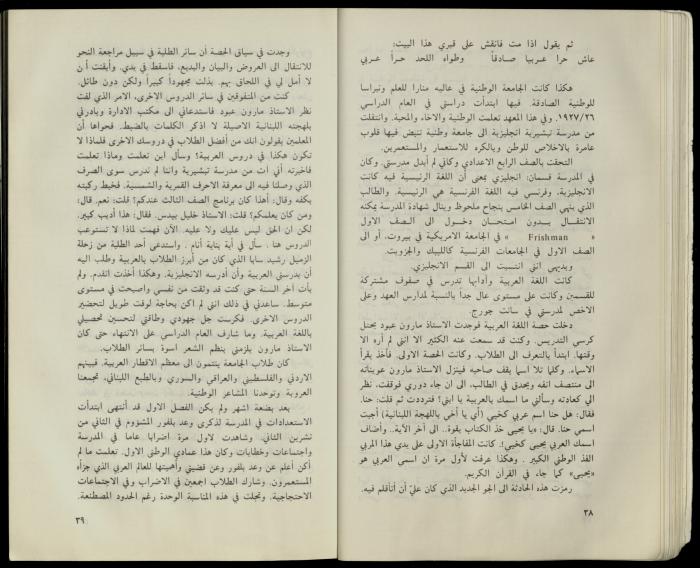 ثم يقول اذا مت فانقش على قبري هذا البيت:
عاش حرا عربيا صادقاً وطواه اللحد حراً عربي
هكذا كانت الجامعة الوطنية في عاليه منارا للعلم ونبراسا
للوطنية الصادقة فيها ابتدأت دراستي في العام الدراسي
١٩٢٧/٢٦. وفي هذا المعهد تعلمت الوطنية والاخاء والمحبة. وانتقلت
من مدرسة تبشيرية انجليزية الى جامعة وطنية تنبض فيها قلوب
عامرة بالاخلاص للوطن وبالكره للاستعمار والمستعمرين.
التحقت بالصف الرابع الاعدادي وكأني لم أبدل مدرستي. وكان
في المدرسة قسمان: انجليزي بمعنى أن اللغة الرئيسية فيه كانت
الانجليزية، وفرنسي فيه اللغة الفرنسية هي الرئيسية. والطالب
الذي ينهي الصف الخامس بنجاح ملحوظ وينال شهادة المدرسة يمكنه
الانتقال بدون امتحان دخول الى الصف الاول
« Frishman » في الجامعة الامريكية في بيروت، أو الى
الصف الاول في الجامعات الفرنسية كالليبك والجزويت.
وبديهي انني انتسبت الى القسم الانجليزي.
كانت اللغة العربية وآدابها تدرس في صفوف مشتركة
للقسمين وكانت على مستوى عال جداً بالنسبة لمدارس العهد وعلى
الاخص لمدرستي في سانت جورج.
دخلت حصة اللغة العربية فوجدت الاستاذ مارون عبود يحتل
كرسي التدريس. وكنت قد سمعت عنه الكثير الا انني لم أره الا
وقتها. ابتدأ بالتعرف الى الطلاب. وكانت الحصة الاولى. فأخذ يقرأ
الاسماء. وكلما تلا اسما يقف صاحبه فينزل الاستاذ مارون عويناته
الى منتصف انفه ويحدق في الطالب، الى ان جاء دوري فوقفت، نظر
الي كعادته وسألني ما اسمك بالعربية يا ابني؟ فترددت ثم قلت: حنا.
فقال: هل حنا اسم عربي كخيي (أي يا أخي باللهجة اللبنانية) أجبت
اسمي حنا. قال: «يا يحيى خذ الكتاب بقوة.. الى آخر الآية.. وأضاف
اسمك العربي يحيى كخيي!. كانت المفاجأة الاولى على يدي هذا المربي
الفذ الوطني الكبير . وهكذا عرفت لأول مرة ان اسمى العربي هو
«يحيى» كما جاء في القرآن الكريم.
رمزت هذه الحادثة الى الجو الجديد الذي كان عليّ أن أتأقلم فيه.
٣٨
وجدت في سياق الحصة أن سائر الطلبة في سبيل مراجعة النحو
للانتقال الى العروض والبيان والبديع، فاسقط في يدي. وأيقنت أن
لا أمل لي في اللحاق بهم. بذلت مجهوداً كبيراً ولكن دون طائل.
كنت من المتفوقين في سائر الدروس الاخرى، الامر الذي لفت
نظر الاستاذ مارون عبود فاستدعاني الى مكتب الادارة وبادرني
بلهجته اللبنانية الاصيلة لا اذكر الكلمات بالضبط. فحواها أن
المعلمين يقولون انك من أفضل الطلاب في دروسك الاخرى فلماذا لا
تكون هكذا في دروس العربية؟ وسأل اين تعلمت وماذا تعلمت
فاخبرته أني ات من مدرسة تبشيرية واننا لم ندرس سوى الصرف
الذي وصلنا فيه الى معرفة الاحرف القمرية والشمسية. فخبط ركبته
بكفه وقال: أهذا كان برنامج الصف الثالث عندكم؟ قلت: نعم. قال:
ومن كان يعلمكم؟ قلت: الاستاذ خليل بيدس. فقال: هذا أديب كبير.
لكن ان الحق ليس عليك ولا عليه. الآن فهمت لماذا لا تستوعب
الدروس هنا . سأل في أية بناية أنام . واستدعى أحد الطلبة من زحلة
الزميل رشيد سابا الذي كان من أبرز الطلاب بالعربية وطلب اليه
أن يدرسني العربية وأن أدرسه الانجليزية. وهكذا أخذت اتقدم. ولم
يأت آخر السنة حتى كنت قد وثقت من نفسي واصبحت في مستوى
متوسط. ساعدني في ذلك انني لم اكن بحاجة لوقت طويل لتحضير
الدروس الاخرى. فكرست جل جهودي وطاقتي لتحسين تحصيلي
باللغة العربية. وما شارف العام الدراسي على الانتهاء حتى كان
الاستاذ مارون يلزمني بنظم الشعر اسوة بسائر الطلاب.
كان طلاب الجامعة ينتمون الى معظم الاقطار العربية. فبينهم
الاردني والفلسطيني والعراقي والسوري وبالطبع اللبناني، تجمعنا
العروبة وتوحدنا المشاعر الوطنية.
بعد بضعة اشهر ولم يكن الفصل الاول قد أنتهى ابتدأت
الاستعدادات في المدرسة لذكرى وعد بلفور المشؤوم في الثاني من
تشرين الثاني. وشاهدت لاول مرة اضرابا عاما في المدرسة
واجتماعات وخطابات وكان هذا عمادي الوطني الاول. تعلمت ما لم
أكن أعلم عن وعد بلفور وعن قضيتي وأهميتها للعالم العربي الذي جزأه
المستعمرون. وشارك الطلاب اجمعين في الاضراب وفي الاجتماعات
الاحتجاجية. وتجلت في هذه المناسبة الوحدة رغم الحدود المصطنعة.
٣٩